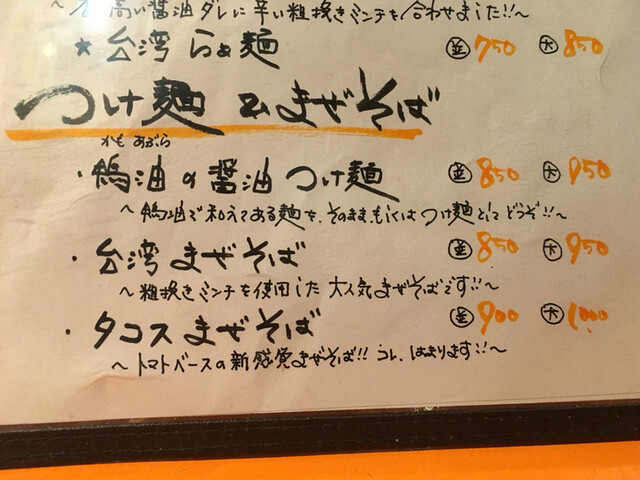 高い醤油ダレに辛い粗挽きミンチを合わせました!!〜
★台湾らぁ麺 並 750 大 850
つけ麺 &まぜそば
かもあぶら
・鴨油の醤油つけ麺 並 850 大 950
〜鴨油で和えてある麺を、そのまま、もしくはつけ麺としてどうぞ!!〜
・台湾まぜそば 並 850 大 950
〜粗挽きミンチを使用した大人気まぜそばです!!〜
・タコスまぜそば 並 900 大 1,000
〜トマトベースの新感覚まぜそば!! コレ、はまります!!〜